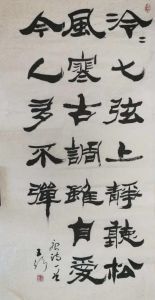 泠泠七弦上靜聽松
風寒古調雖自愛
今人多不彈